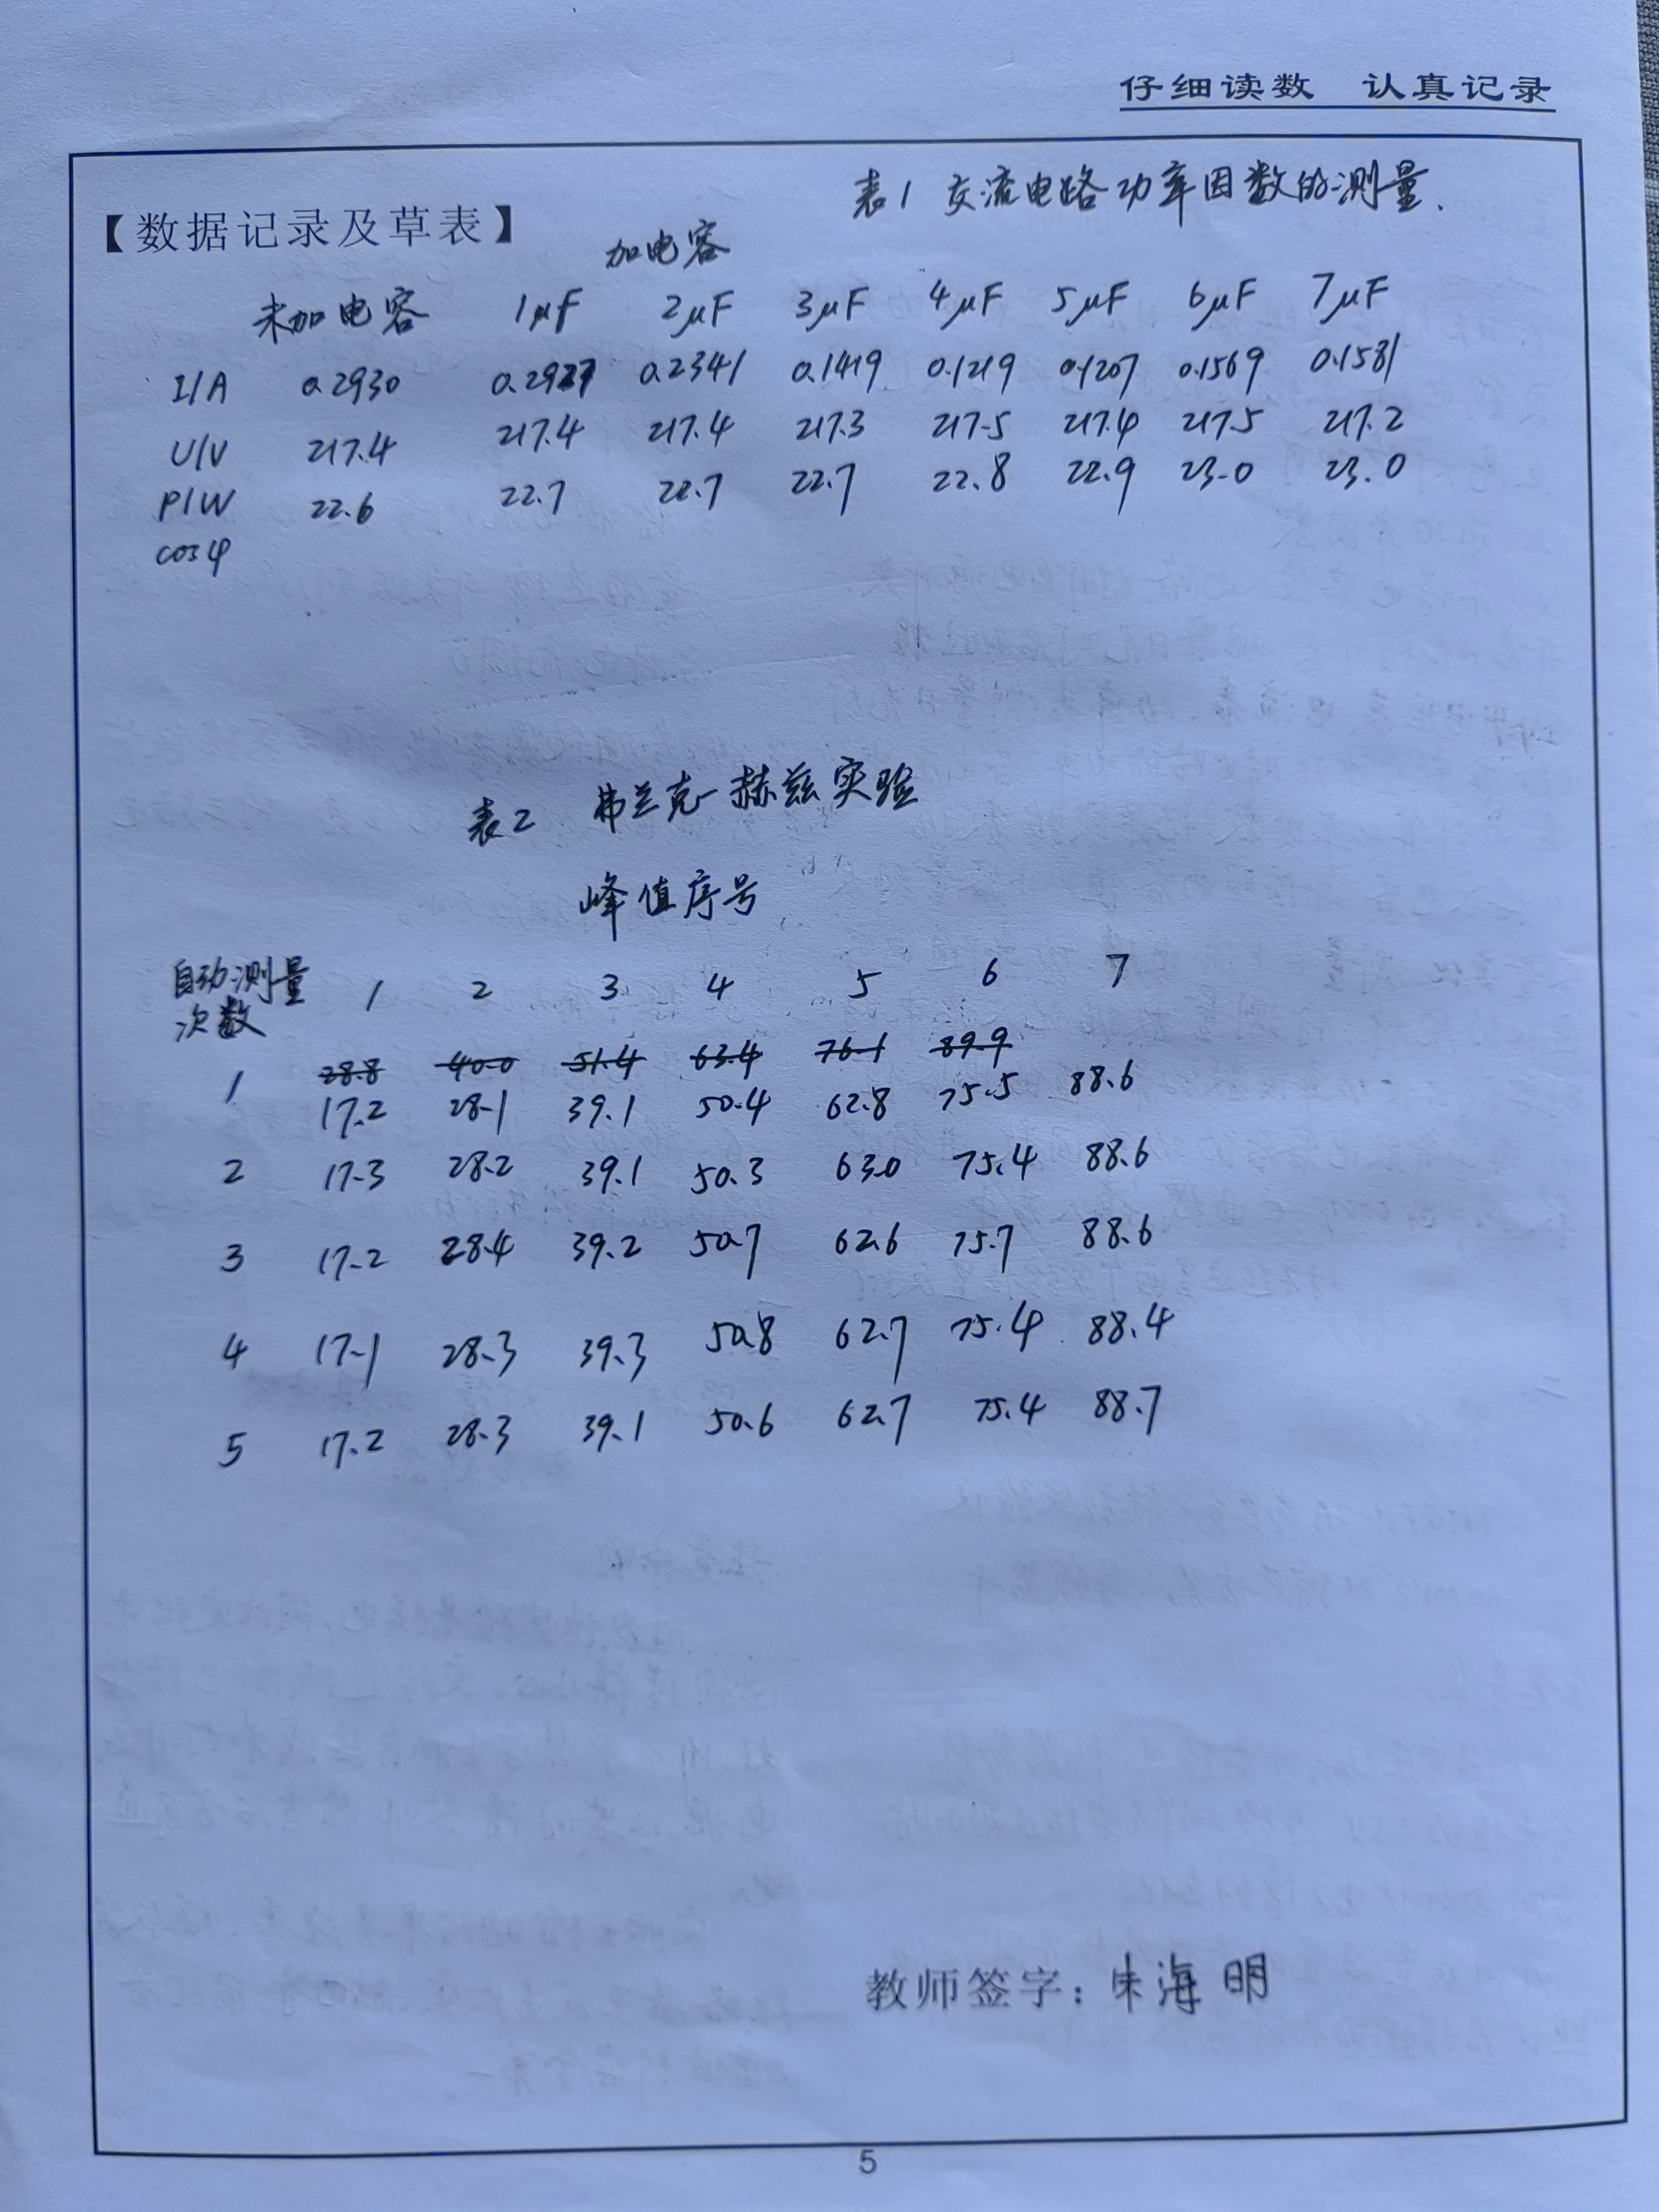 仔细读数 认真记录
表1 交流电路功率因数的测量.
【数据记录及草表】
加电容
未加电容 1μF 2μF 3μF 4μF 5μF 6μF 7μF
I/A 0.2930 0.2937 0.2341 0.1419 0.1219 0.1207 0.1569 0.1581
U/V 217.4 217.4 217.4 217.3 217.5 217.4 217.5 217.2
P/W 22.6 22.7 22.7 22.7 22.8 22.9 23.0 23.0
cosφ
表2 弗兰克-赫兹实验
峰值序号
自动测量次数 1 2 3 4 5 6 7
28.8 40.0 51.4 63.4 76.1 89.9
1 17.2 28.1 39.1 50.4 62.8 75.5 88.6
2 17.3 28.2 39.1 50.3 63.0 75.4 88.6
3 17.2 28.4 39.2 50.7 62.6 75.7 88.6
4 17.1 28.3 39.3 50.8 62.7 75.4 88.4
5 17.2 28.3 39.1 50.6 62.7 75.4 88.7
教师签字：朱海明
5